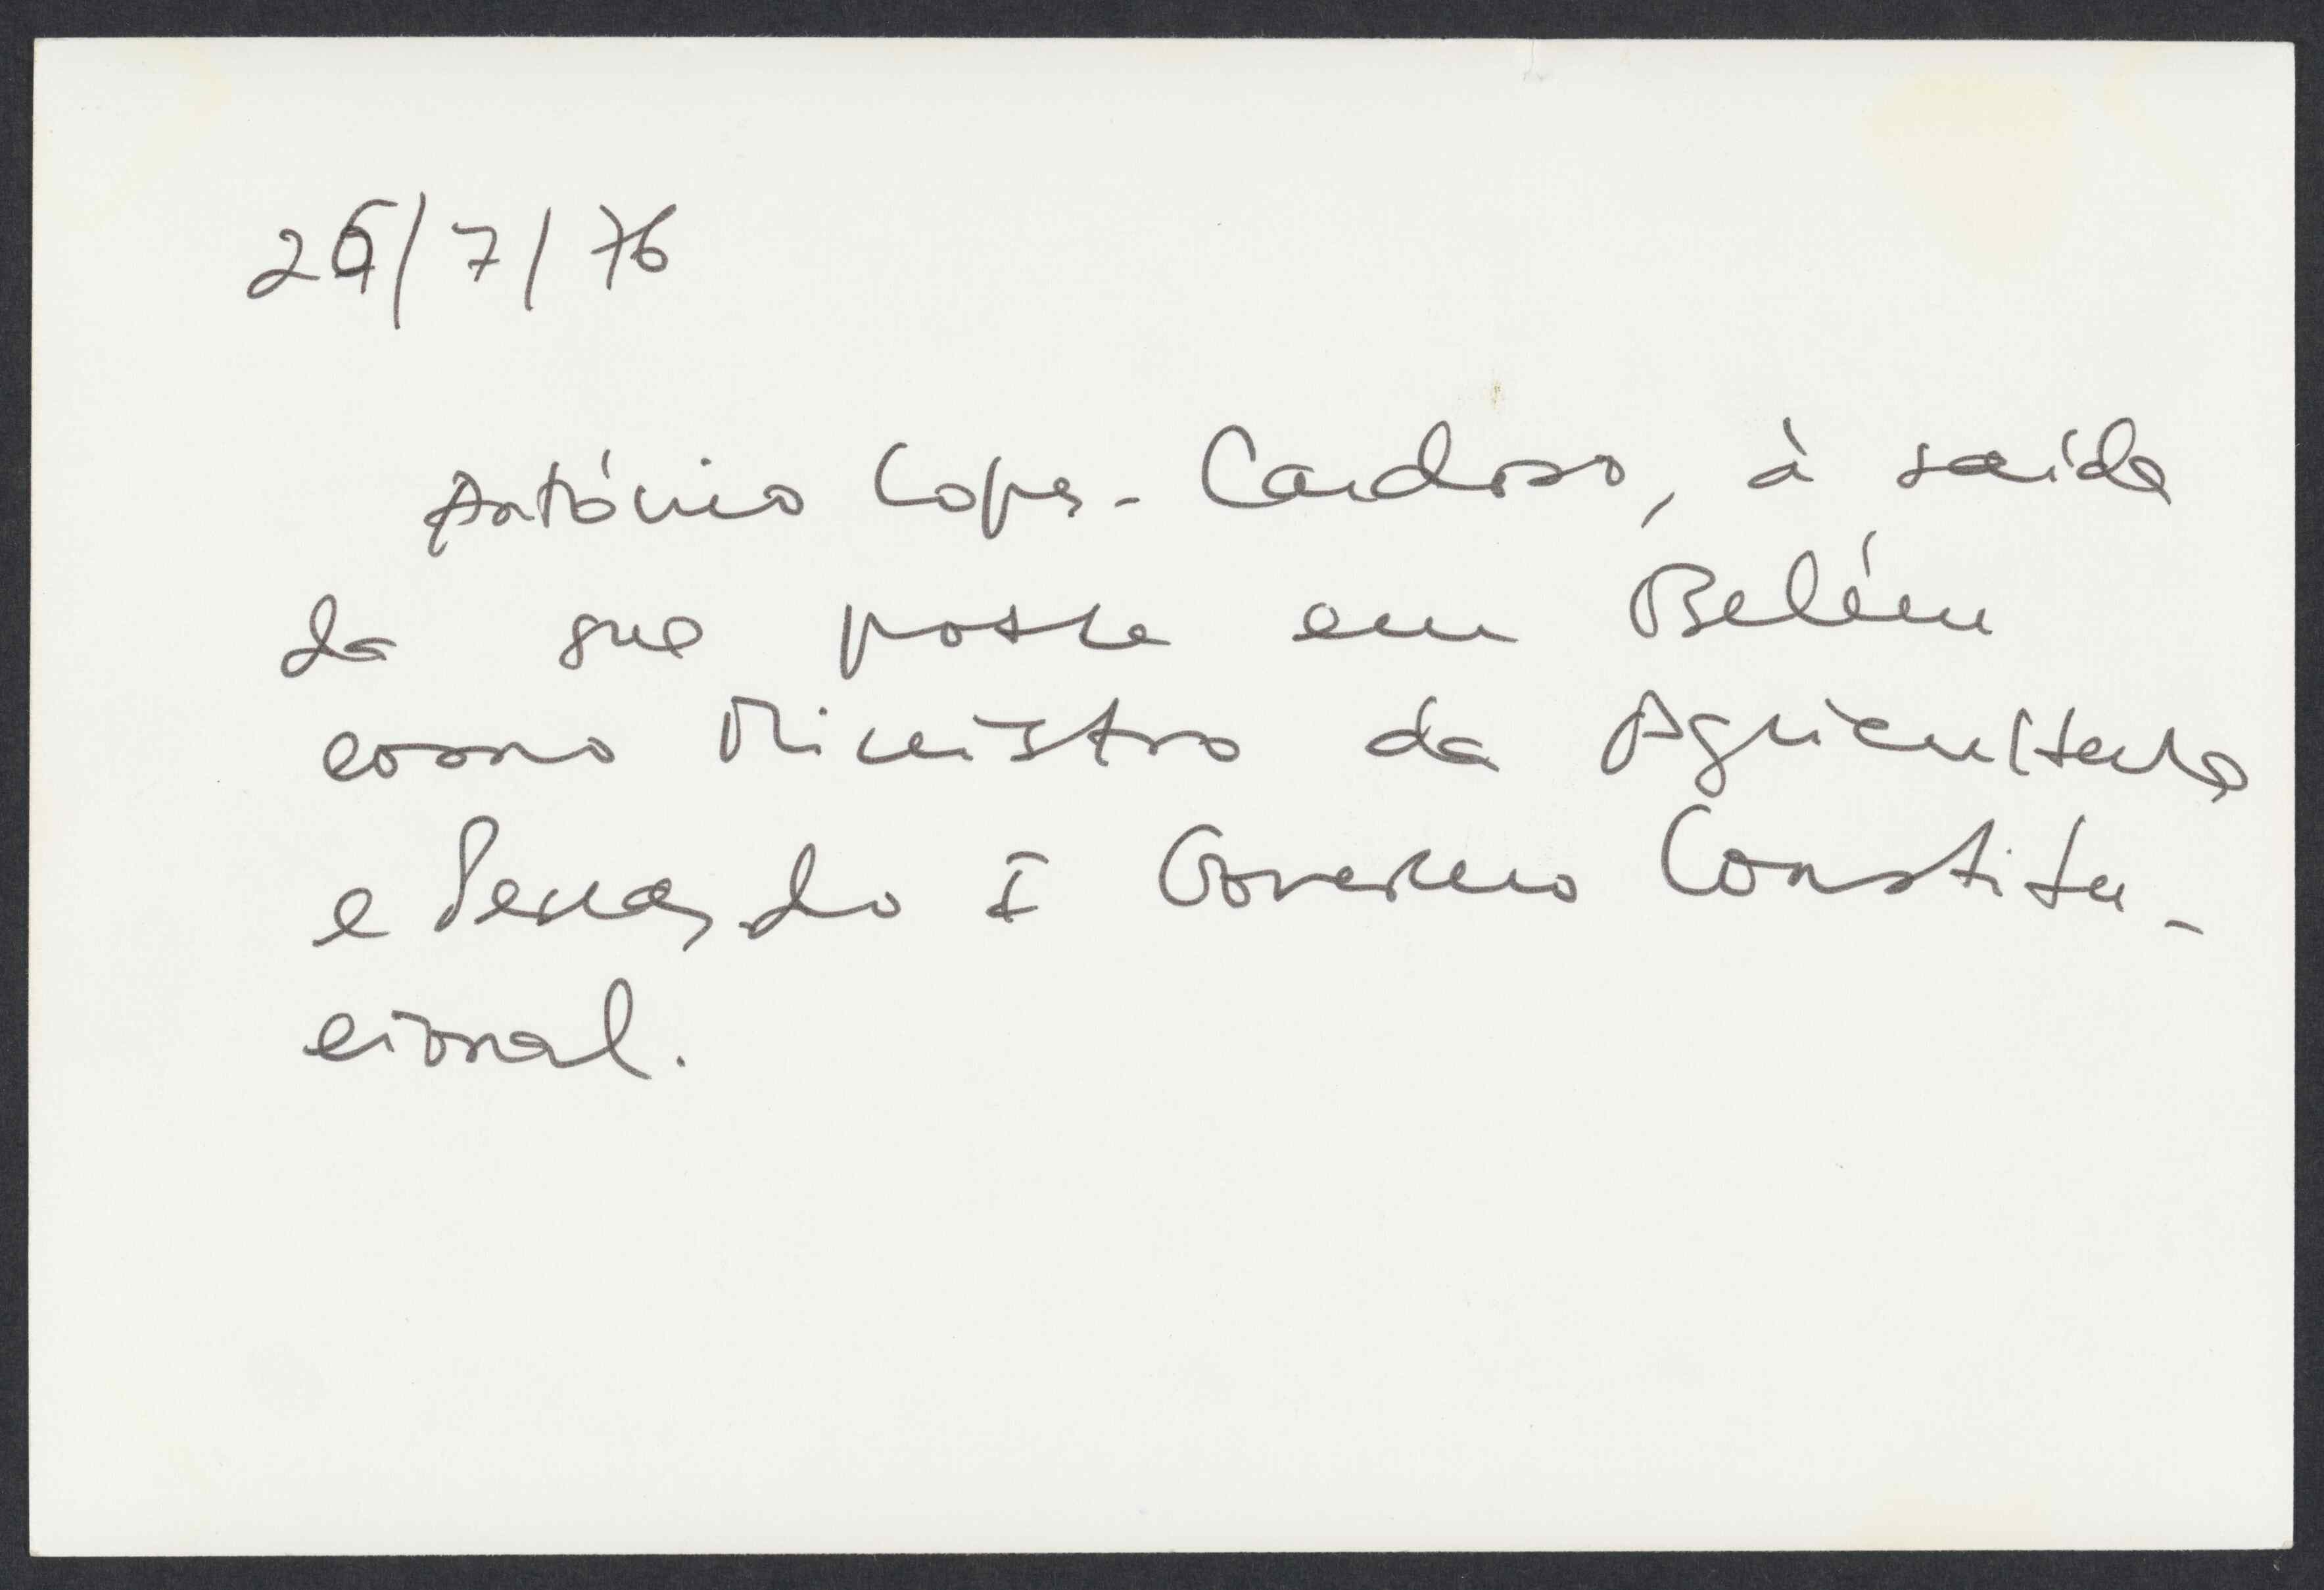 26/7/76
António Lopes-Cardoso, à saída
da sua posse em Belém
como Ministro da Agricultura
e Pescas do I Governo Constitu-
cional.